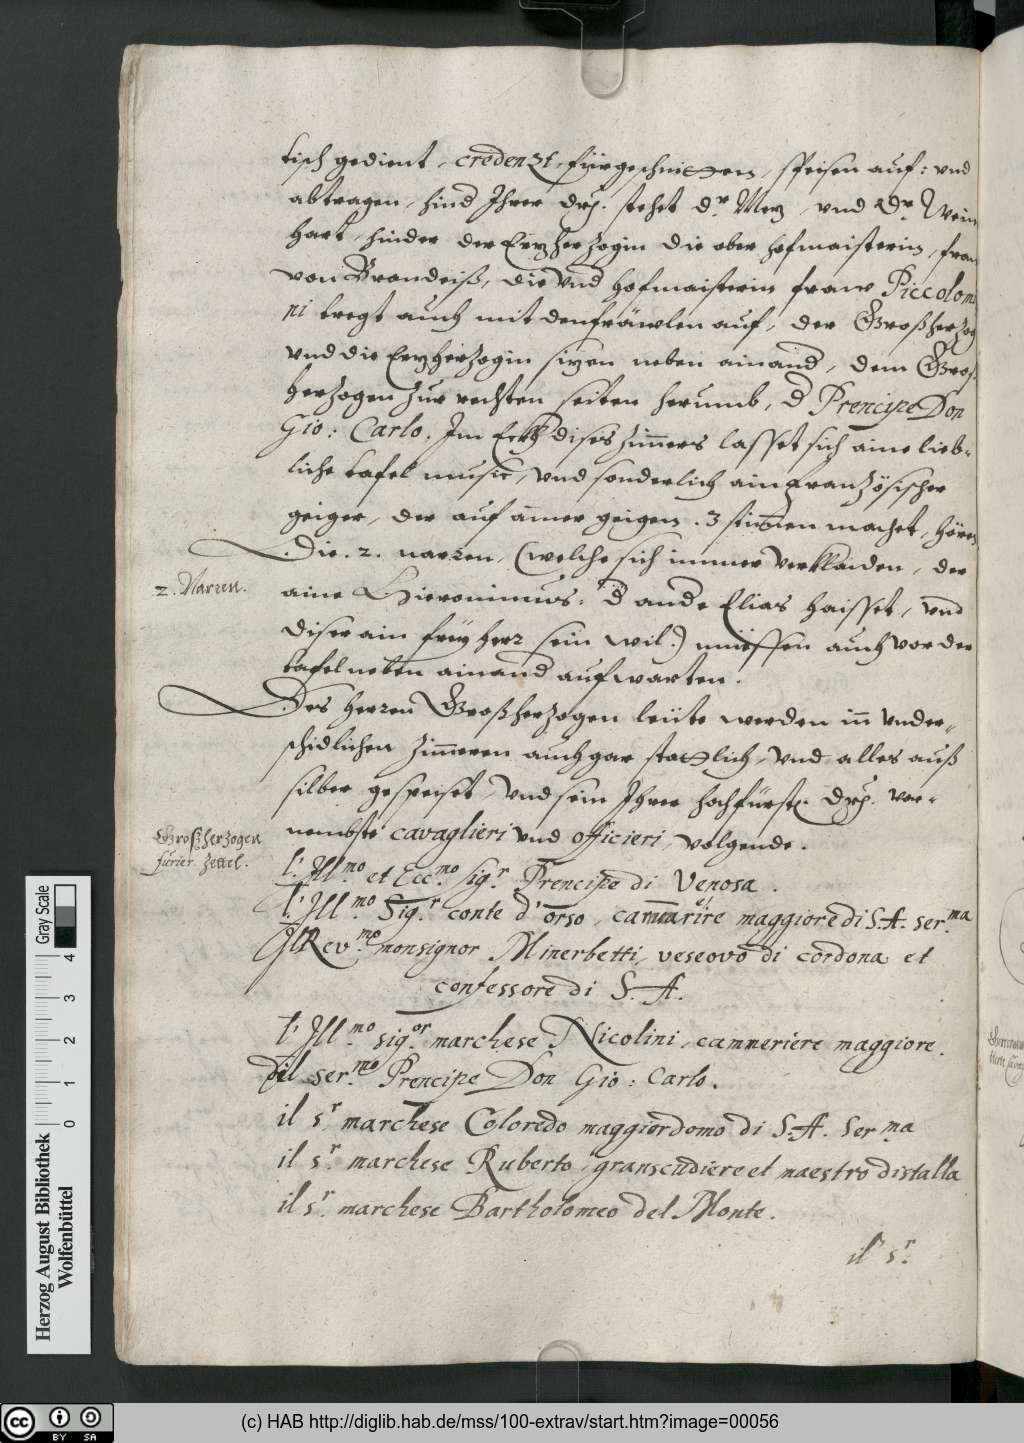 tisch gedient, credenzt, fürgeschnitten, speisen auf: und
abtragen, hind Ihrer Drl. stehet Dr. Merz, und Dr. Wein
hart, hinder der Erzherzogin die ober hofmaisterin, fraw
von Brandeiß, die Und hofmaisterin fraw Piccolomi
ni tregt auch mit den fräwlen auf, der Großherzog
und die Erzherzogin sizen neben ainand, dem Gros
herzogen zur rechten seiten herumb, d Prencipe Don
Gio: Carlo. Im Eckh dises Zimmers lasset sich aine lieb-
liche tafel music, und sonderlich ain französischer
geiger, der auf ainer geigen .3 stimmen machet, hören
2. Narren.
Die .2. narren, (welche sich immer verklaiden, der
aine Hieronimus: d ander Elias haisset, und
diser ain frey herr sein wil.) müessen auch vor der
tafel neben ainand aufwarten.
Des herren Großherzogen leüte werden in under-
schidlichen Zimmeren auch gar stattlich, und alles auß
silber gespeiset, und sein Ihrer hochfürstl. Drl. vor-
nembste cavaglieri und officieri, volgende.
Großherzogen
furier Zettel.
l'. Ill.mo et Ecc.mo Sig.r Prencipe di Venosa.
l'. Ill.mo Sig.r conte d'orso, maggiore di S.A. ser.ma
Il Rev.mo monsignor Minerbetti, vescovo di cordona et
confessore di S. A.
l' Ill.mo sig.or marchese Nicolini, cammeriere maggiore.
del ser.mo Prencipe Don Gio: Carlo.
il s.r marchese Coloredo maggiordomo di S.A. Ser.ma
il s.r marchese Ruberto, granscudiere et maestro distalla
il s.r marchese Bartholomeo del Monte.
il s.r
Gray Scale
0 1 2 3 4
Herzog August Bibliothek
Wolfenbüttel
cc BY SA
(c) HAB http://diglib.hab.de/mss/100-extrav/start.htm?image=00056